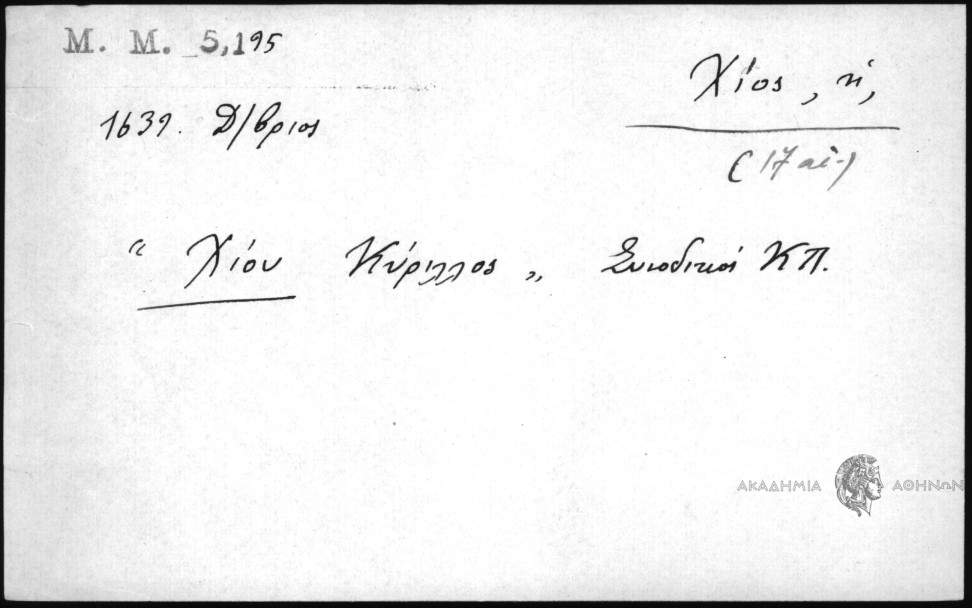 M. M. 5,195
Χίος, ἡ,
1639. Δ/βριος
(17 αἰ.)
“ Χίου Κύριλλος „ Συνοδικοί ΚΠ.
ΑΚΑΔΗΜΙΑ ΑΘΗΝΩΝ